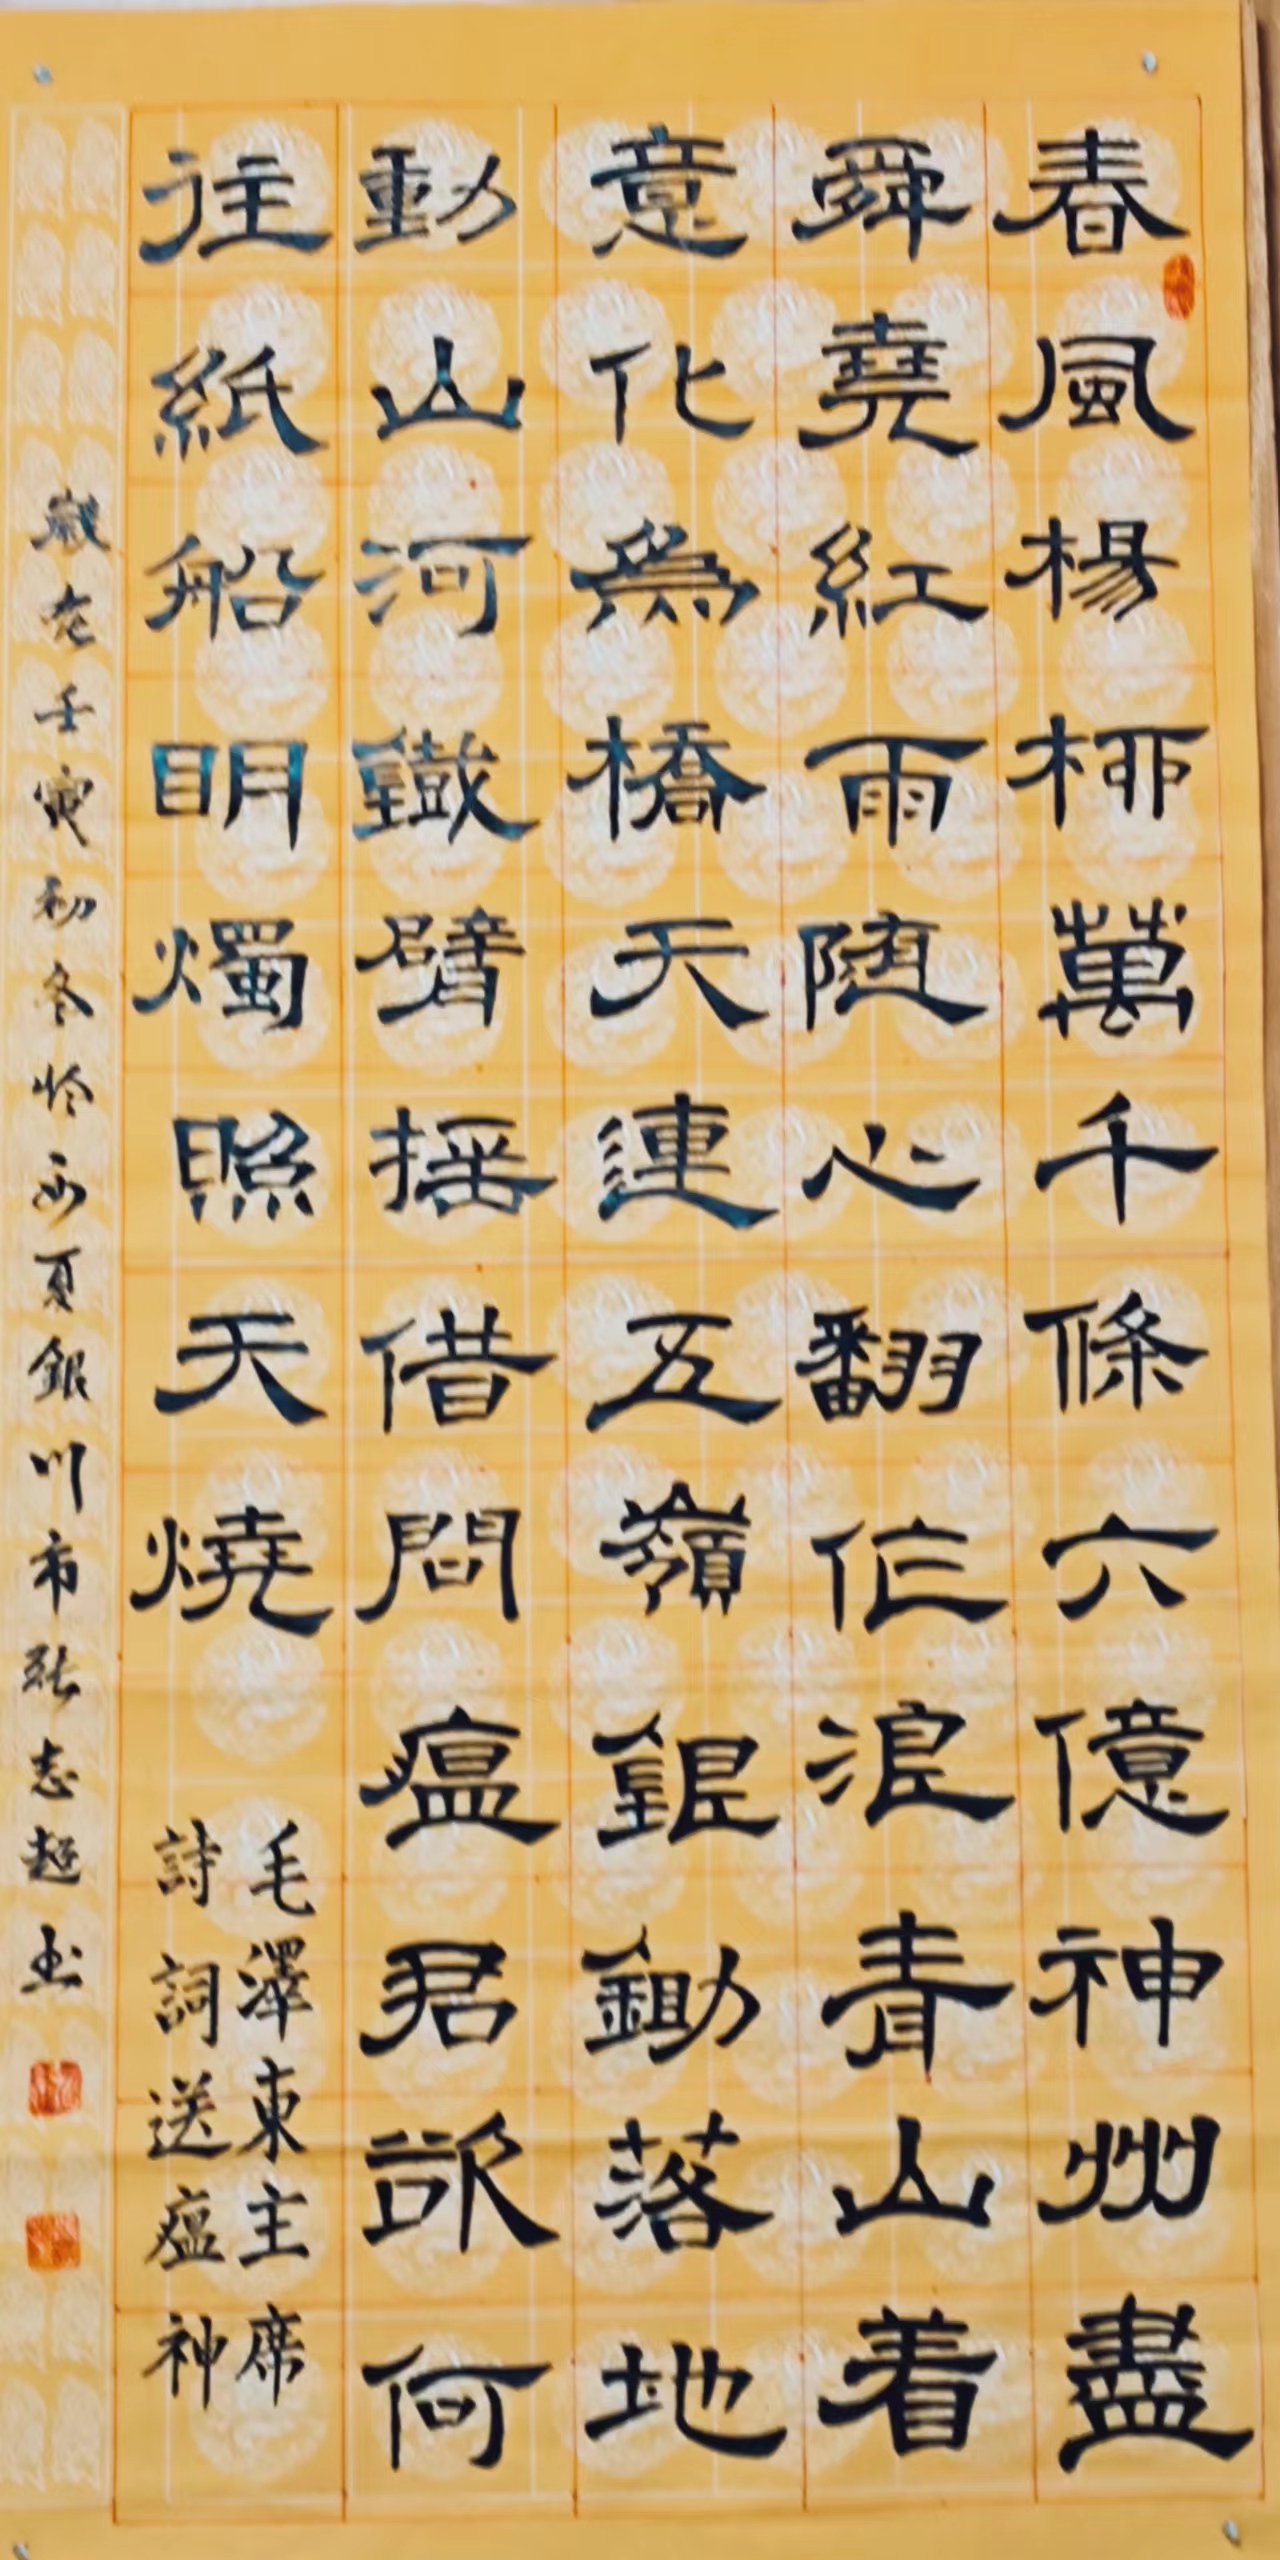 春風楊柳萬千條六億神州盡
舜堯紅雨随心翻作浪青山着
意化為橋天連五嶺銀鋤落地
動山河鐵臂搖借問瘟君欲何
往紙船明燭照天燒
毛澤東主席
詩詞送瘟神
歲在壬寅初冬於寧夏銀川市張志超书